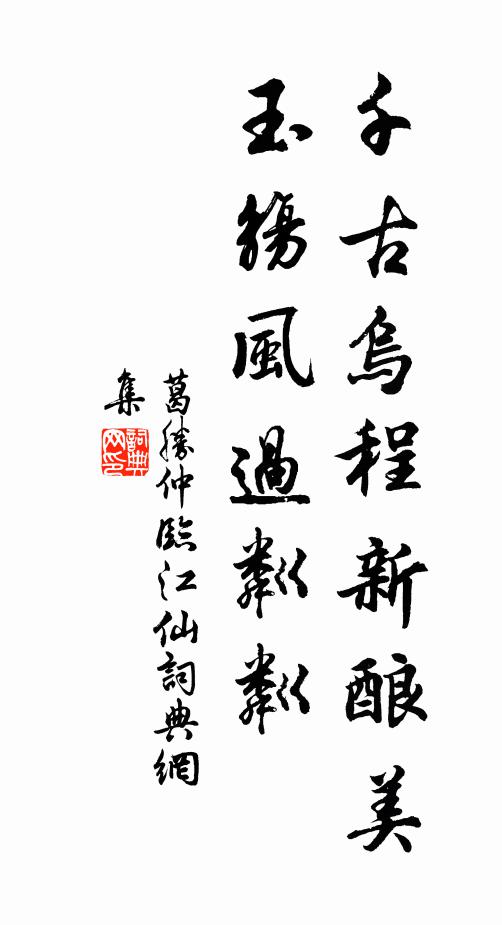 千古烏程新酿美
玉觴風過粼粼
葛勝仲臨江仙詞典網
集
詞典网印